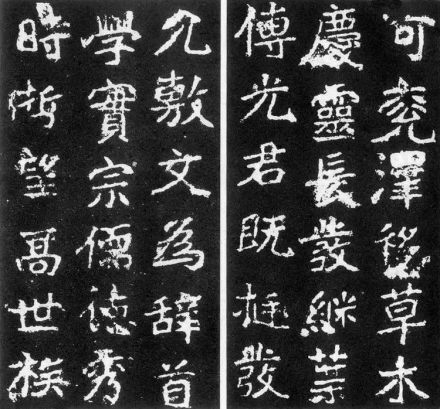 可澤草木
慶靈長發継葉
傳光君既挺發
敷文為辭首
學實宗儒德秀
時哲望高世族